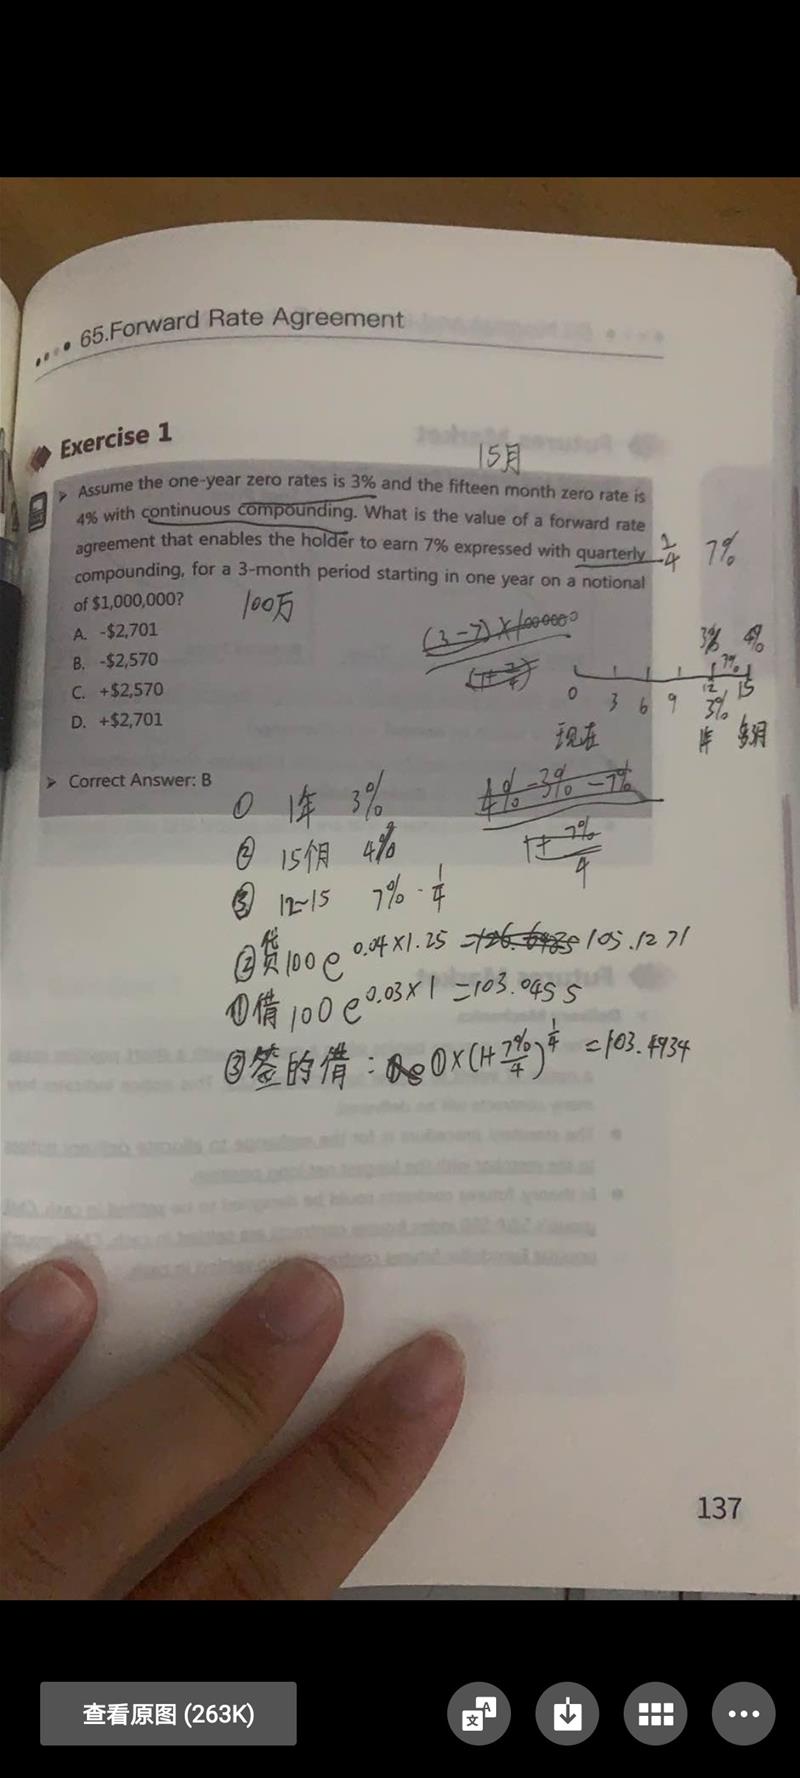 65.Forward Rate Agreement
Exercise 1
15月
Assume the one-year zero rates is 3% and the fifteen month zero rate is
4% with continuous compounding. What is the value of a forward rate
agreement that enables the holder to earn 7% expressed with quarterly
7%
compounding, for a 3-month period starting in one year on a notional
of $1,000,000?
100万
A. -$2,701
B. -$2,570
C. +$2,570
D. +$2,701
3% 4%
7%
0 3 6 9 12 15
3%
现在
Correct Answer: B
① 1年 3%
4% - 3% - 7%
1+ 7%/4
② 15个月 4%
③ 12~15 7% · 1/4
②贷100e^0.04×1.25 = 105.1271
①借100e^0.03×1 =103.0455
③签的借: ①×(1+7%/4)^1/4 =103.4934
137
查看原图 (263K)